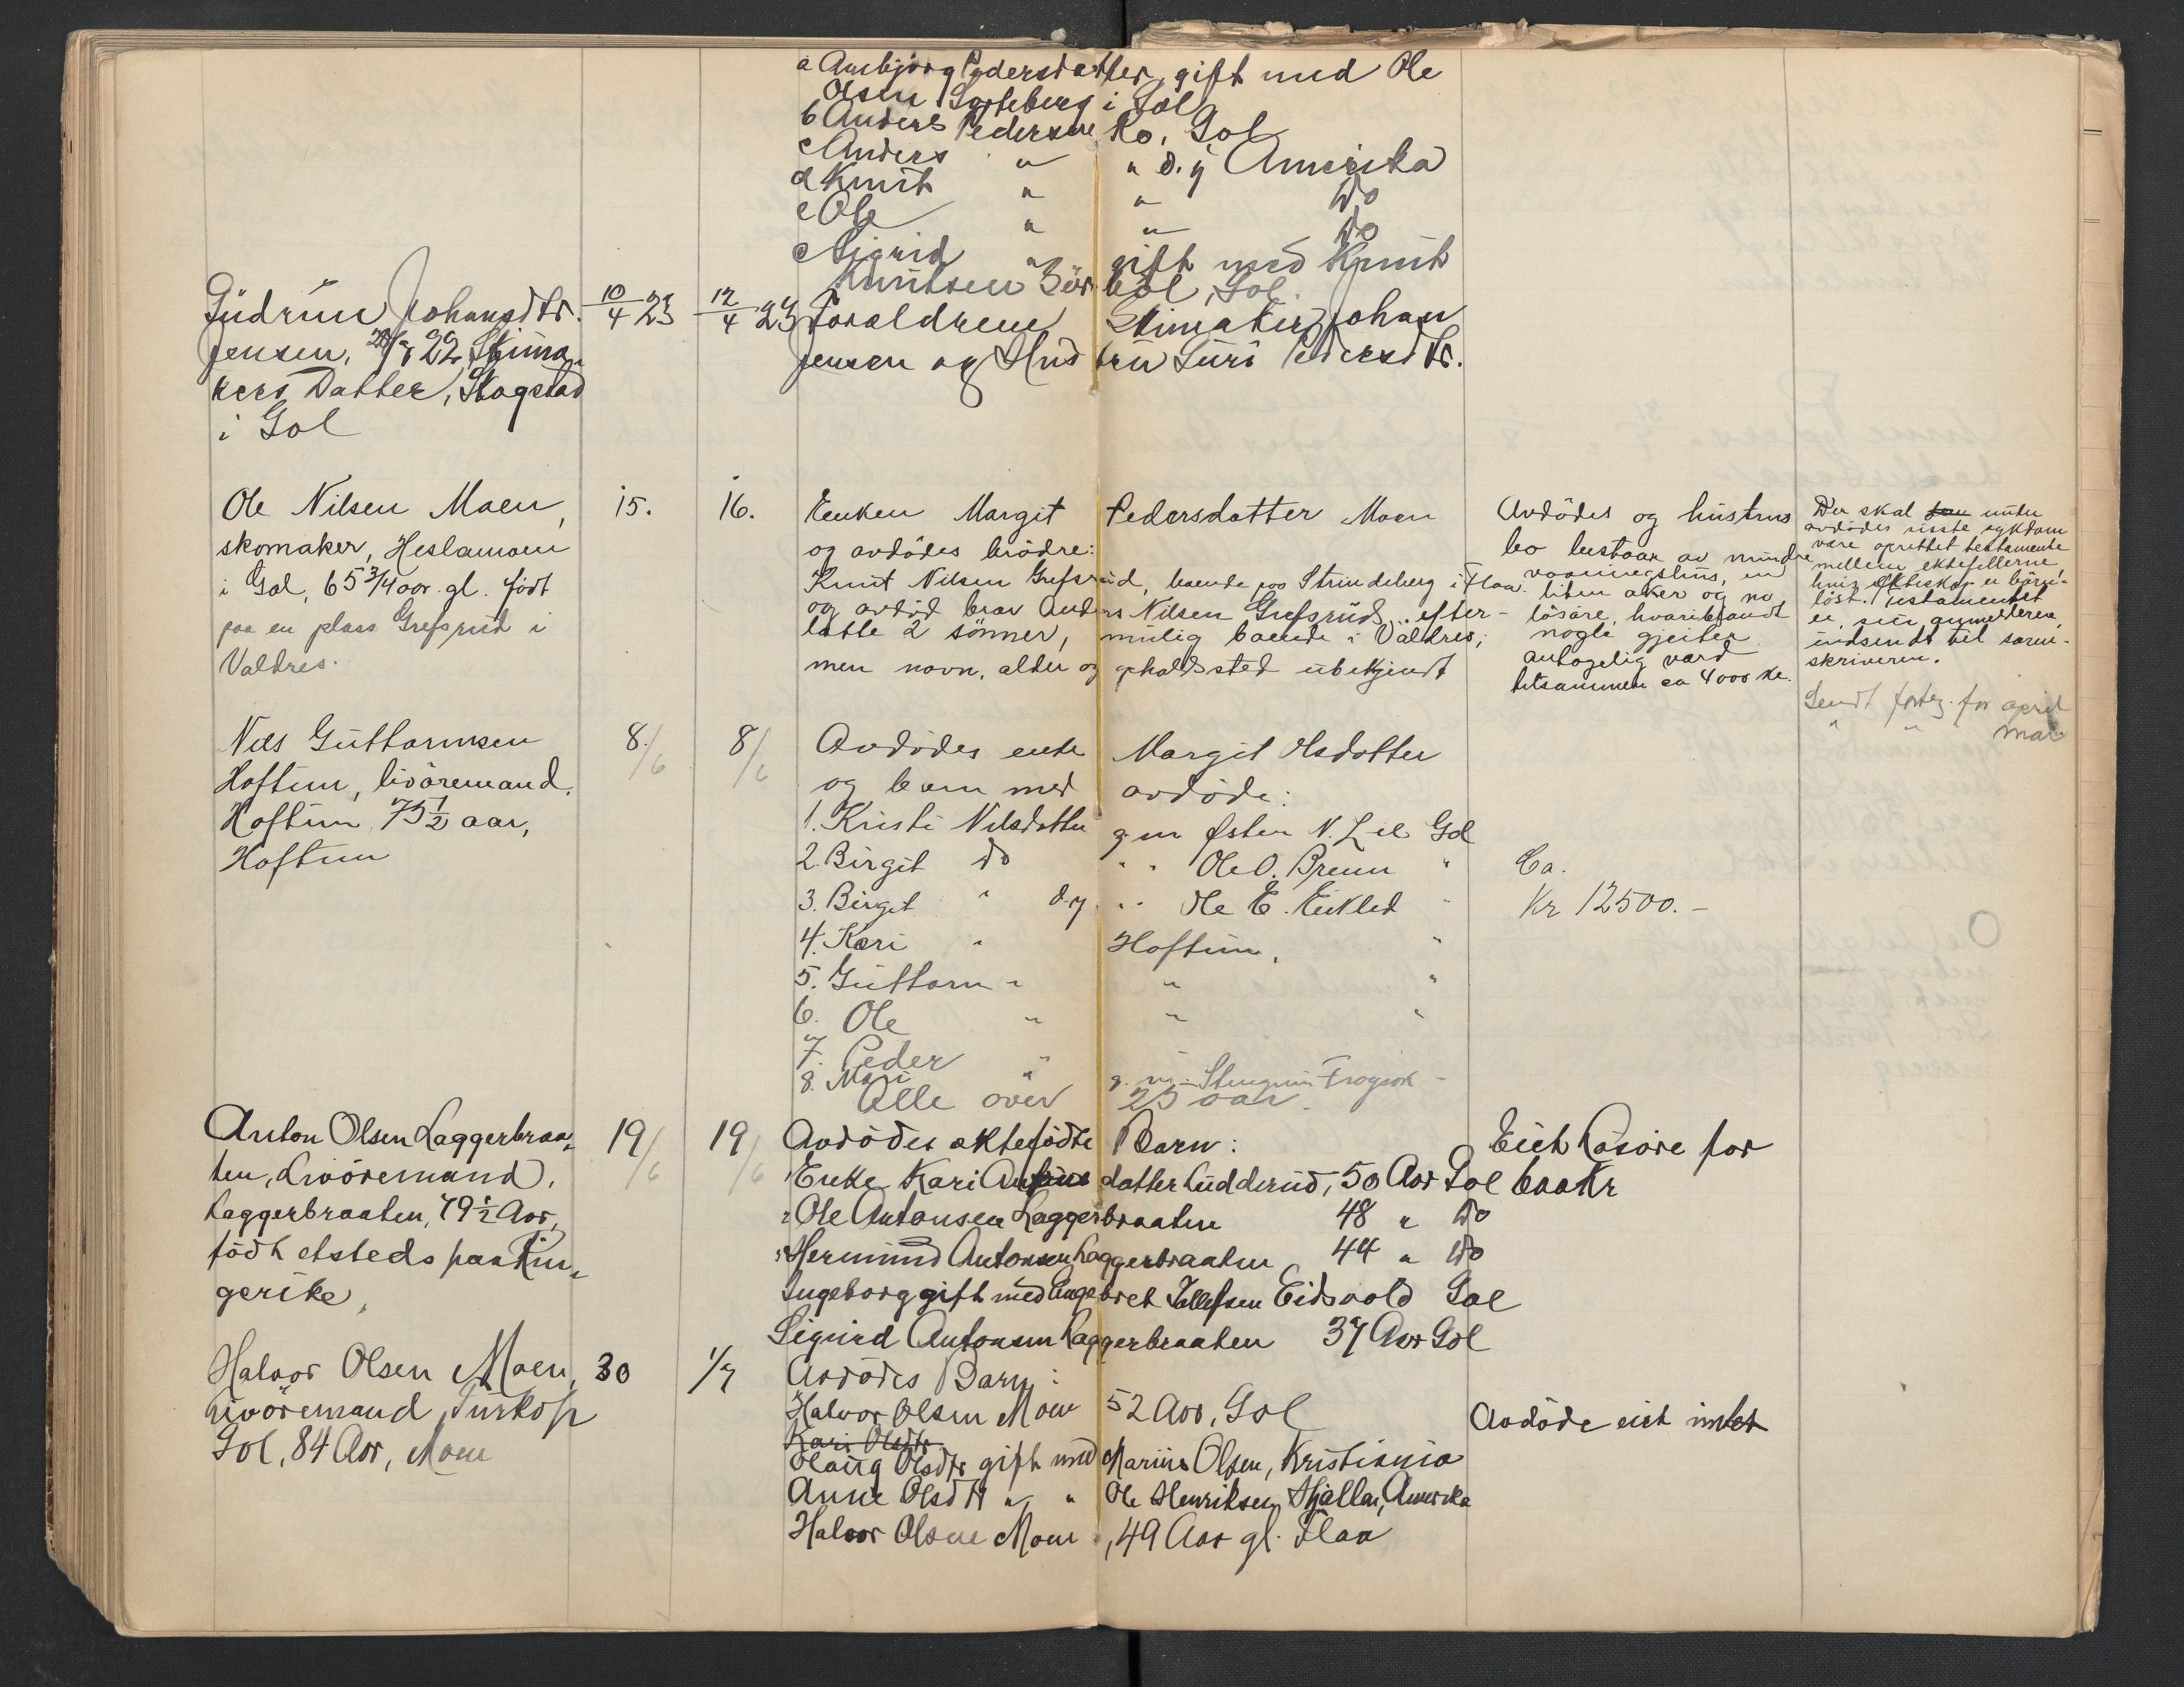 a Ambjörg Pedersdatter, gift med Ole
Olsen Sørteberg i Gol
b Anders Pedersen Ro, Gol
c Anders " " d.y Amerika
d Knut " " Do
e Ole " " Do
Sigrid " gift med Knut
Knutsen Börtböl, Gol.
Gudrun Johansdtr.
Jensen, 22, Skima-
kers Datter, Skagstad
i Gol
10/4 23
12/4 23
Foraldrene Skimaker Johan
Jensen og Hustru Guri Pedersdtr.
Ole Nilsen Moen,
skomaker, Heslamoen
i Gol, 65 3/4 aar gl. født
paa en plass Grefsrud i
Valdres.
15.
16.
Enken Margit Pedersdatter Moen
og avdödes brödre:
Knut Nilsen Grefsrud, boende paa Strindeberg i Flaa.
og avdöd bror Anders Nilsen Grefsrud, efter-
latte 2 sönner, mulig boende i Valdres,
men navn, alder og opholdssted ubekjendt
Avdödes og hustrus
bo bestaar av mindre
vaaningshus, en
liten aker og no
lösöre, hvoriblandt
nogle gjeiter
antagelig värd
tilsammen ca 4000 kr.
Der skal under
avdödes sidste sykdom
være oprettet testamente
mellem ektefellerne,
hvis ekteskap er barn-
löst. Testamentet
er, sier anmelderen,
indsendt til soren-
skriveren.
Sendt forteg. for april
" " mai
Nils Guttormsen
Hoftun, livöremand.
Hoftun 75 1/2 aar,
Hoftun
8./6
8/6
Avdödes enke Margit Olsdatter
og barn med avdöde:
1. Kristi Nilsdatter g.m Østen N. Lie Gol
2. Birgit Do " " Ole O. Brenn "
3. Birgit " d.y " " Ole E. Eikled "
4. Kari " Hoftun, "
5. Guttorm " " "
6. Ole " " "
7. Peder " "
8. Mari " g. m. Frøgsok -
Alle over 25 aar.
Ca.
Kr 12500.-
Anton Olsen Laggerbraa-
ten, Livöremand,
Laggerbraaten, 79 1/2 Aar,
födt etsteds paa Rin-
gerike,
19/6
19/6
Avdödes ektefödte Barn:
1 Enke Kari Antons datter Rudderud, 50 Aar Gol
2 Ole Antonsen Laggerbraaten 48 " Do
3 Hermund Antonsen Laggerbraaten 44 " Do
Ingeborg gift med Engebret Tollefsen Eidsvold Gol
Sigurd Antonsen Laggerbraaten 37 Aar Gol
Eiet Lösöre for
600 Kr
Halvor Olsen Moen,
Livöremand, Turkop
Gol, 84 Aar, Moen
30
1/7
Avdödes Barn:
Halvor Olsen Moen 52 Aar, Gol
Kari Olsdtr.
Olaug Olsdtr gift med Marius Olsen, Kristiania
Anne Olsdtr " " Ole Henriksen Hjallar, Amerika
Halvor Olsen Moen, 49 Aar gl. Flaa
Avdöde eiet intet